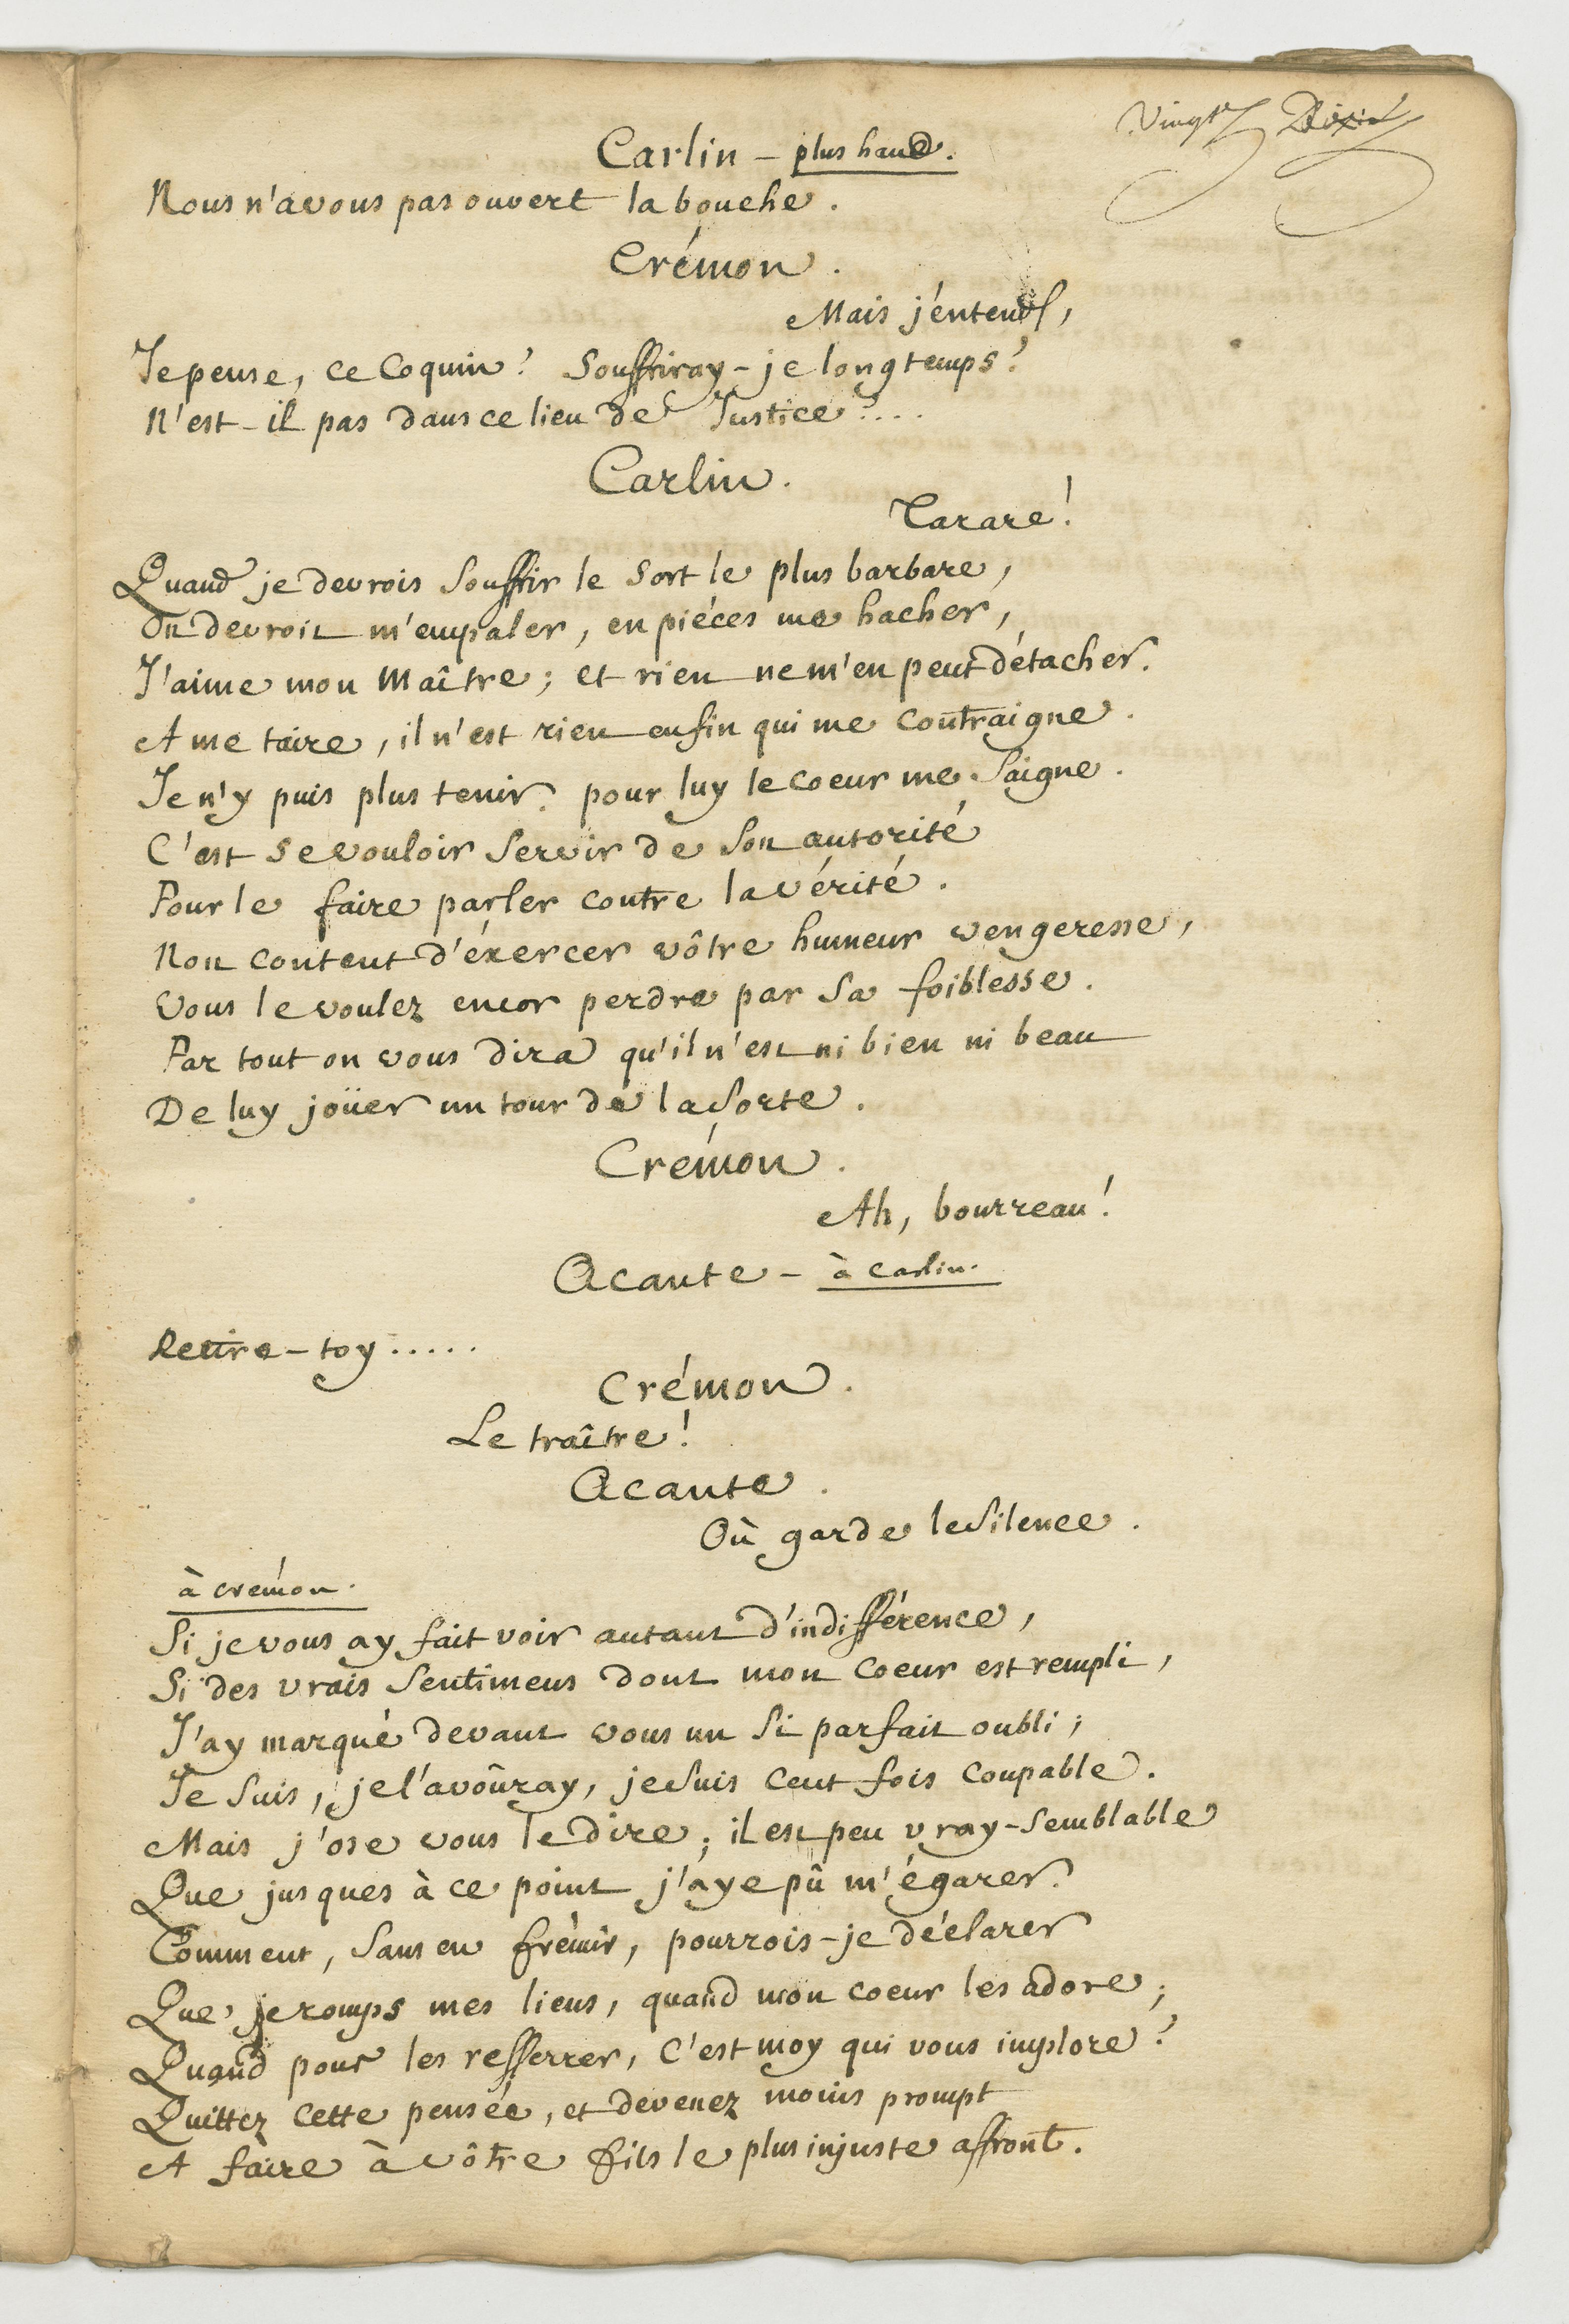 Vingt
Carlin – plus haud.
Nous n'avons pas ouvert la bouche.
Crémon.
Mais j'entends,
Je pense, ce Coquin? Souffriray-je longtemps?
N'est-il pas dans ce lieu de Justice?....
Carlin.
Tarare!
Quand je devrois Souffrir le Sort le plus barbare,
On devroit m'empaler, en piéces me hacher,
J'aime mon Maître; et rien ne m'en peut détacher.
A me taire, il n'est rien enfin qui me contraigne.
Je n'y puis plus tenir. pour luy le coeur me Saigne.
C'est se vouloir Servir de Son autorité
Pour le faire parler contre la vérité.
Non content d'éxercer vôtre humeur vengeresse,
Vous le voulez encor perdre par Sa foiblesse.
Par tout on vous dira qu'il n'est ni bien ni beau
De luy joüer un tour de la Sorte.
Crémon.
Ah, bourreau!
Acante – à Carlin.
Retire-toy.....
Crémon.
Le traître!
Acante.
Où garde le Silence.
à Crémon.
Si je vous ay fait voir autant d'indifférence,
Si des vrais Sentimens dont mon coeur est rempli,
J'ay marqué devant vous un Si parfait oubli;
Je Suis, je l'avoûray, je Suis cent fois coupable.
Mais j'ose vous le dire; il est peu vray-Semblable
Que jusques à ce point j'aye pû m'égarer.
Comment, Sans en frémir, pourrois-je déclarer
Que je romps mes liens, quand mon coeur les adore;
Quand pour les resserrer, C'est moy qui vous implore?
Quittez cette pensée, et devenez moins prompt
A faire à vôtre fils le plus injuste affront.